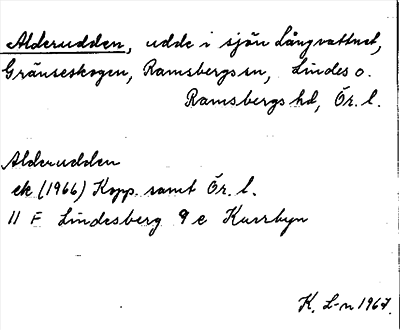 Alderudden, udde i sjön Långvattnet,
Gränsskogen, Ramsbergs sn, Lindes o.
Ramsbergs hd, Ör. l.
Alderudden
ek (1966) Kopp. samt Ör. l.
11 F Lindesberg 9 e Kusrbyn
K. L-n 1967.